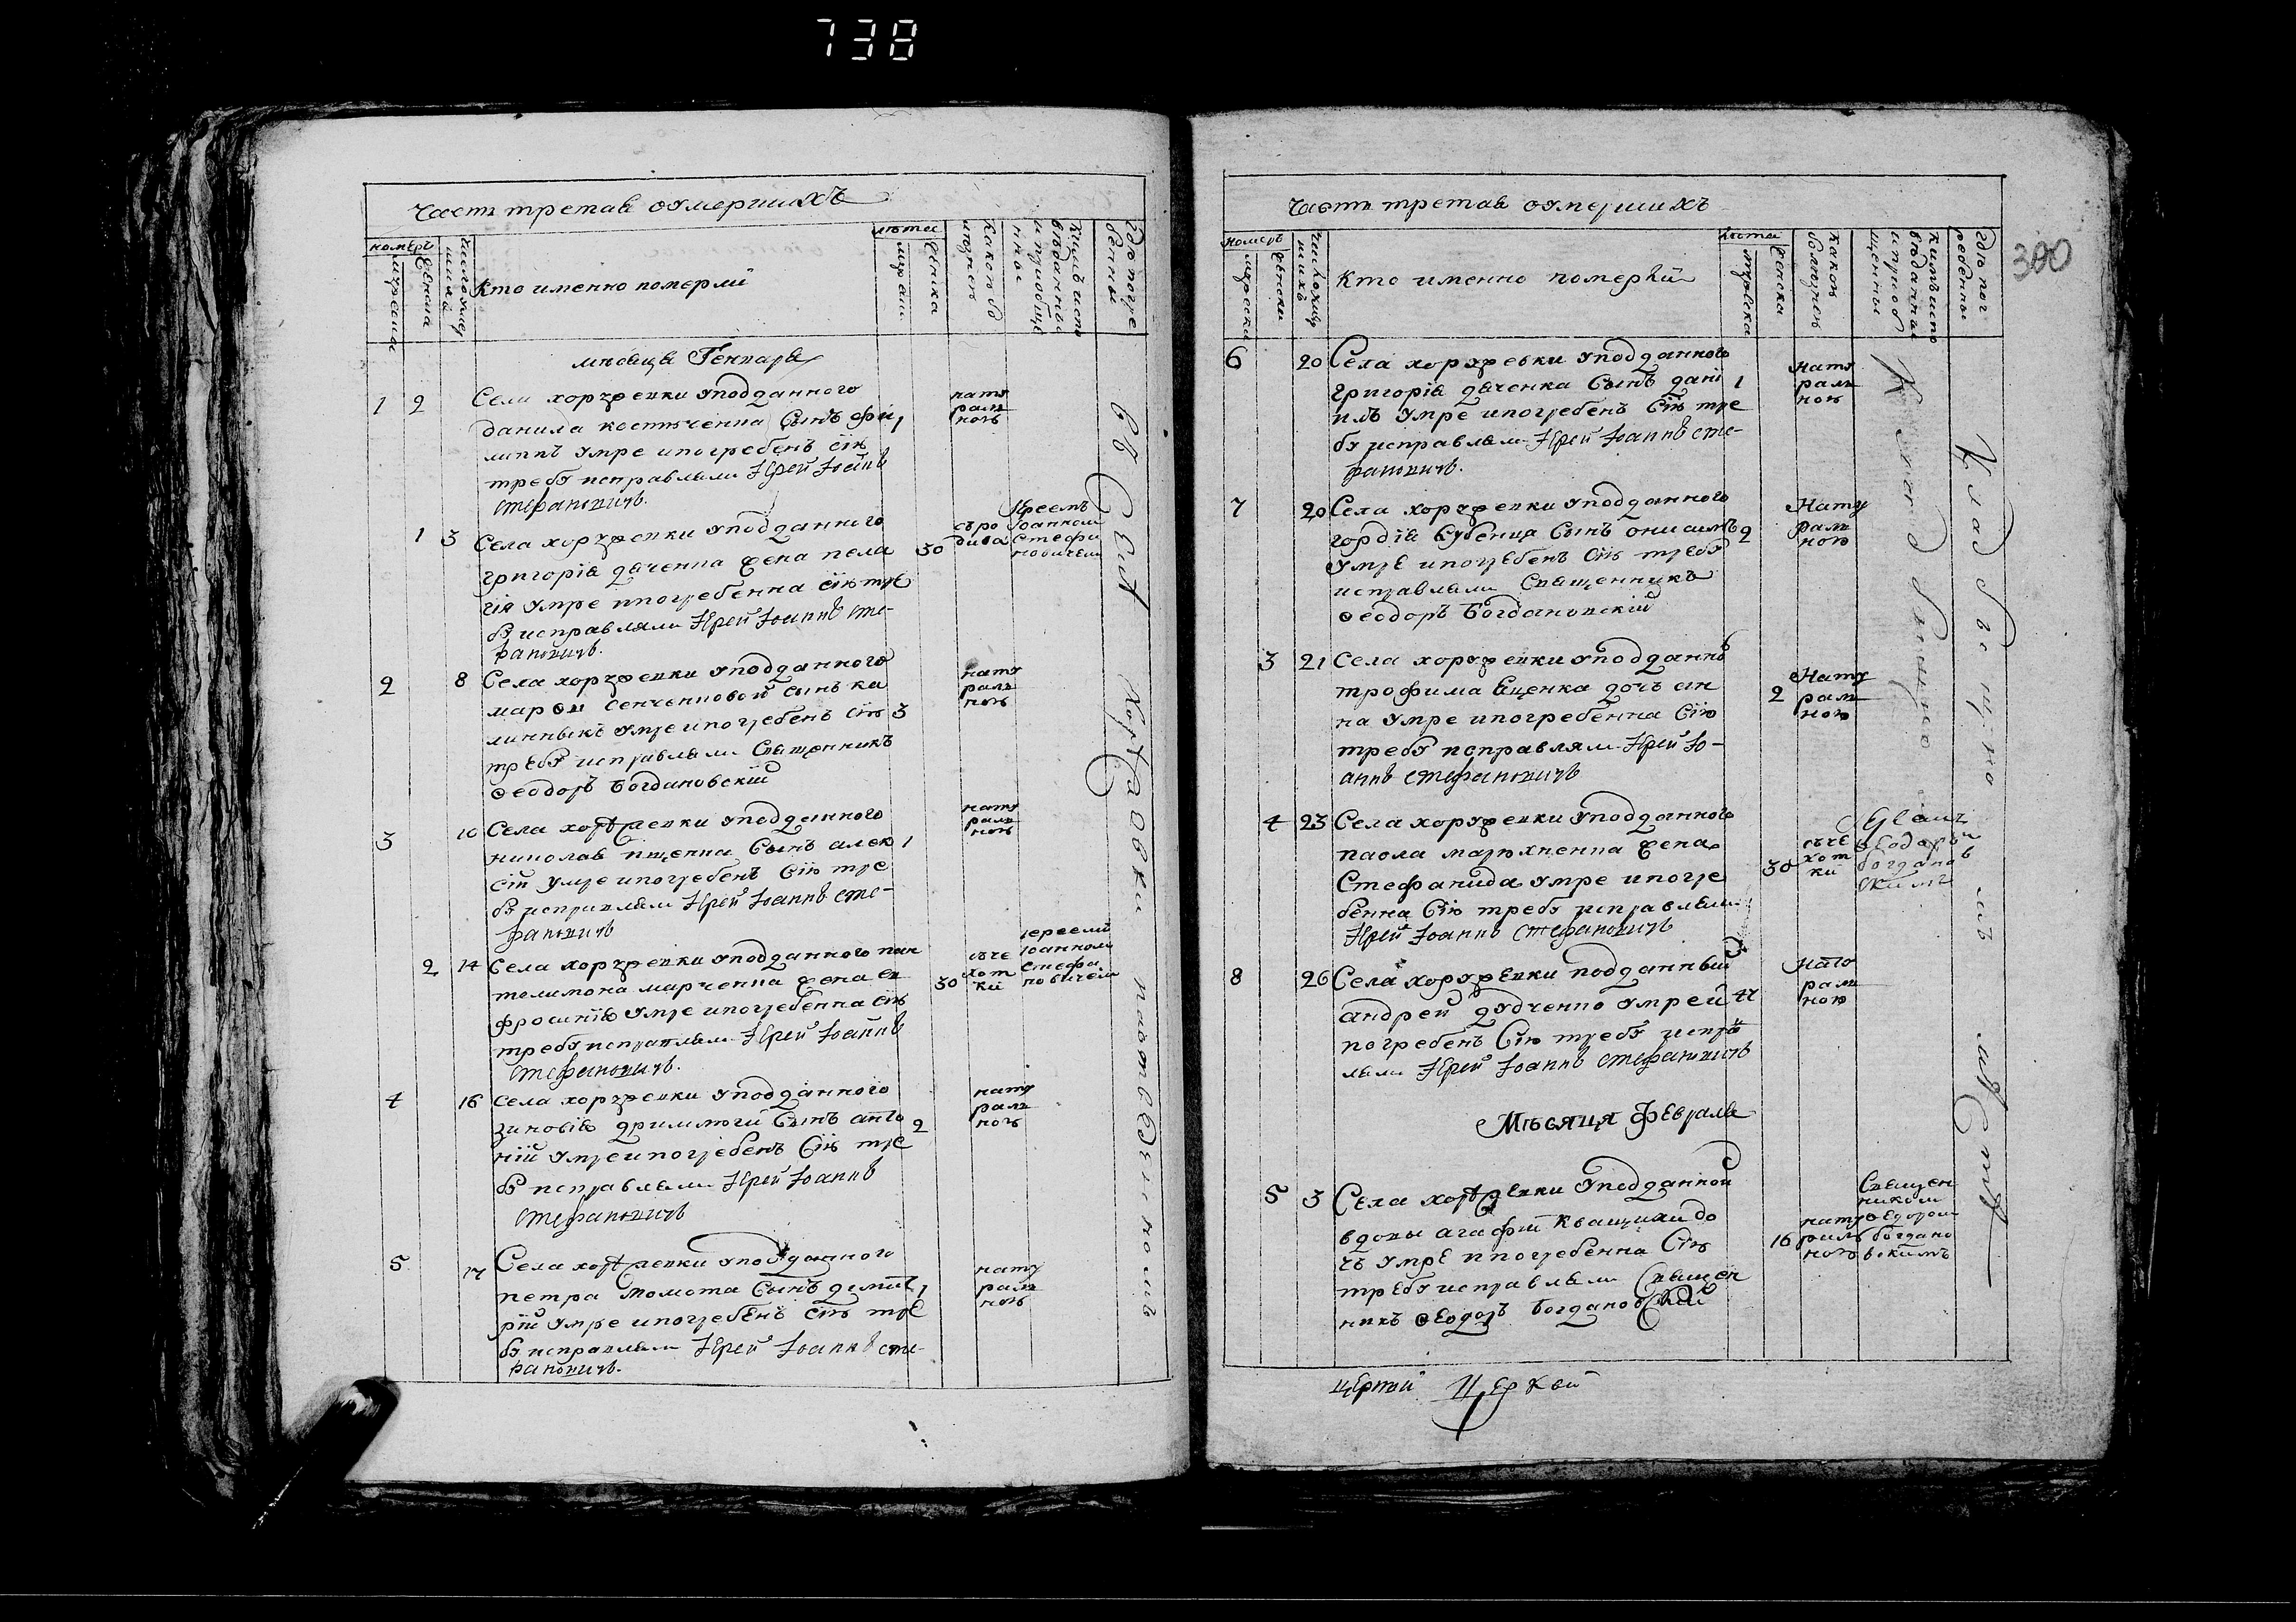 738
Часть третая оумершихъ
номеръ
мужеска
женска
число умер
шихъ
Кто именно померлй
лѣта
женска
какою бо
лѣзнею
кимъ испо
вѣданны
и приобще
нны
где погре
бенны
мѣсяца Генваря
1 2
Села хоружевки уподданного
данила костюченка Сынъ фи 1
липпъ умре ипогребенъ сїю
требу исправляли Іерей Іоаннъ
стефановичъ.
нату
раль
ною
1 3
Села хоружевки уподданного
григорія дяченка жена пела 30
гія умре ипогребенна сїю тре
бу исправляли Іерей Іоаннъ сте-
фановичъ.
Иереемъ
Іоанномъ
Стефа
новичем
2 8
Села хоружевки уподданного
марфы сенченковой сынъ ка
линныкъ умре ипогребенъ сїю 3
требу исправляли Священникъ
Ѳеодоръ Богдановскїй
нату
раль
ною
3 10
Села хоружевки уподданного
николая ященка Сынъ алек 1
сїй умре ипогребенъ Сїю тре
бу исправляли Іерей Іоаннъ сте-
фановичъ
нату
раль
ною
2 14
Села хоружевки уподданного пан
телимона марченка жена ев 30
фросинїя умре ипогребенна сїю
требу исправляли Іерей Іоаннъ
стефановичъ.
сѣче
хот
ки
іереемъ
Іоанномъ
Стефа
новичем
4 16
Села хоружевки уподданного
зиновїя дримлюги Сынъ анто 2
нїй умре ипогребенъ Сїю тре
бу исправляли Іерей Іоаннъ
стефановичъ
нату
раль
ною
5 17
Села хоружевки уподданного
петра момота Сынъ дими 1
рїй умре ипогребенъ сїю тре
бу исправляли Іерей Іоаннъ сте-
фановичъ.
нату
раль
ною
въ Селѣ Хоружовки
Часть третая оумершихъ
300
номеръ
мужески
женски
число умер
шихъ
Кто именно померлй
лѣта
мужеска
женска
какою
болѣзнею
кимъ испо
вѣданны
и приоб
щенны
где пог
ребенны
6 20
Села хоружевки уподданного
григорїя дяченка Сынъ дани 1
илъ умре ипогребенъ Сїю тре
бу исправляли Іерей Іоаннъ сте-
фановичъ.
Нату
раль
ною
7 20
Села хоружевки уподданного
гордїя Сынъ онисимъ 2
умре ипогребенъ Сїю требу
исправляли Священникъ
Ѳеодоръ Богдановскїй
Нату
раль
ною
3 21
Села хоружевки уподданнъ
трофима Яценка дочь ан 2
на умре ипогребенна Сїю
требу исправляли Іерей Іо-
аннъ стефановичъ
Нату
раль
ною
4 23
Села хоружевки уподданного
павла марюхненка жена
Стефанида умре ипогре 30
бенна Сїю требу исправляли
Іерей Іоаннъ Стефановичъ
сѣче
хот
ки
Ѳеодоръ
богданов
скимъ
8 26
Села хоружевки подданный
андрей дудченко умре й 44
погребенъ Сїю требу испра
ляли Іерей Іоаннъ стефановичъ
Нату
раль
ною
Мѣсяця февраля
5 3
Села хоружевки уподданной
вдовы агафїи Кващихи до
чъ умре ипогребенна Сїю 16
требу исправляли Священ
никъ Ѳеодоръ Богдановскїй
нату
раль
ною
Священ
никомъ
Ѳедоромъ
богдано
вскимъ
Кладбищѣ
Церкви